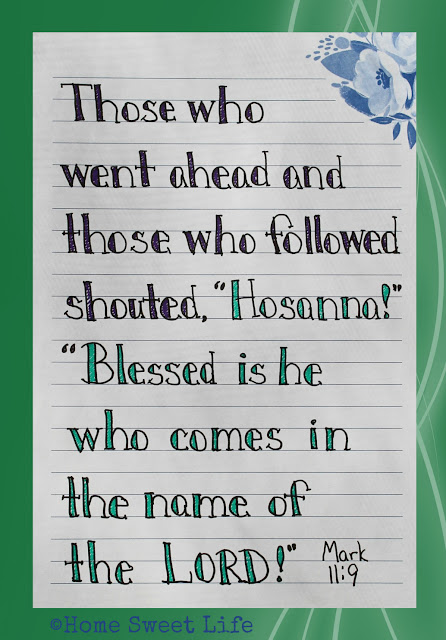 Those who
went ahead and
those who followed
shouted, "Hosanna!"
"Blessed is he
who comes in
the name of
the LORD!"
Mark
11:9
©Home Sweet Life